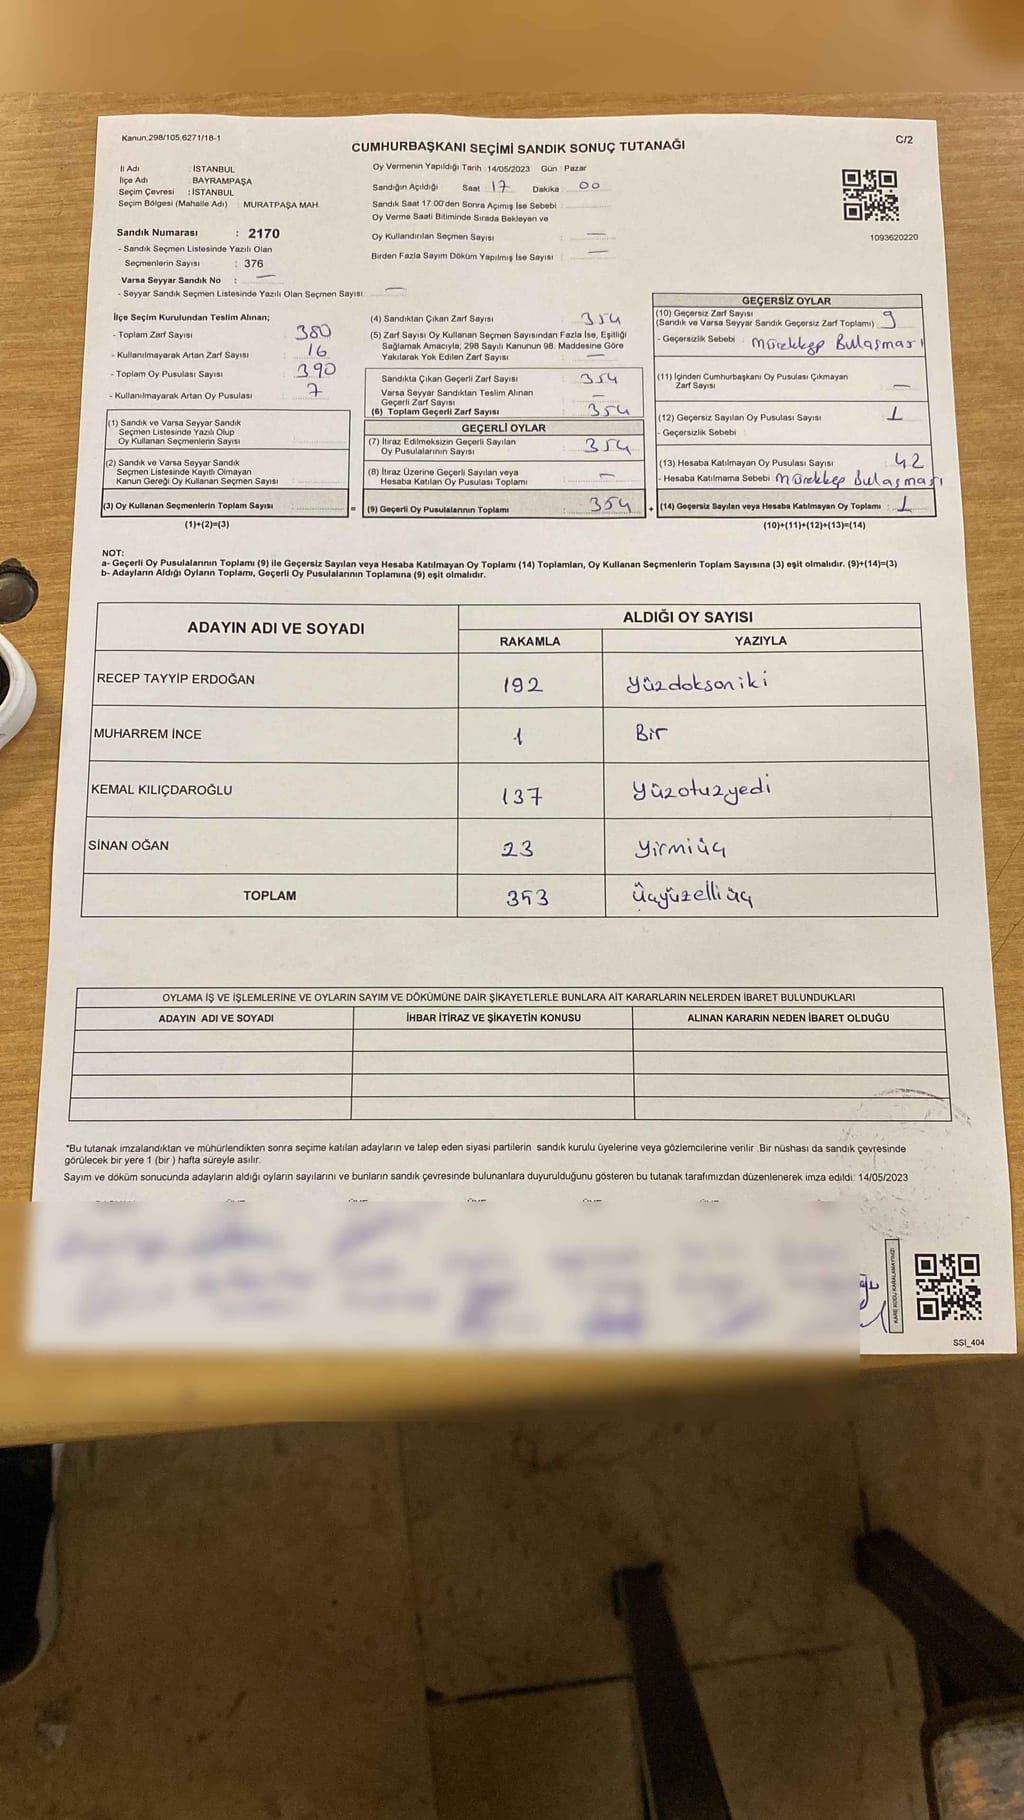 Kanun,298/105,6271/18-1
C/2
CUMHURBAŞKANI SEÇİMİ SANDIK SONUÇ TUTANAĞI
İl Adı : İSTANBUL
İlçe Adı : BAYRAMPAŞA
Seçim Çevresi : İSTANBUL
Seçim Bölgesi (Mahalle Adı) : MURATPAŞA MAH.
Sandık Numarası : 2170
- Sandık Seçmen Listesinde Yazılı Olan
Seçmenlerin Sayısı : 376
Varsa Seyyar Sandık No : —
- Seyyar Sandık Seçmen Listesinde Yazılı Olan Seçmen Sayısı : —
Oy Vermenin Yapıldığı Tarih : 14/05/2023 Gün : Pazar
Sandığın Açıldığı Saat 17 Dakika 00
Sandık Saat 17:00'den Sonra Açımış İse Sebebi :
Oy Verme Saati Bitiminde Sırada Bekleyen ve
Oy Kullandırılan Seçmen Sayısı : —
Birden Fazla Sayım Döküm Yapılmış İse Sayısı : —
1093620220
İlçe Seçim Kurulundan Teslim Alınan;
- Toplam Zarf Sayısı : 380
- Kullanılmayarak Artan Zarf Sayısı : 16
- Toplam Oy Pusulası Sayısı : 390
- Kullanılmayarak Artan Oy Pusulası : 7
(1) Sandık ve Varsa Seyyar Sandık
Seçmen Listesinde Yazılı Olup
Oy Kullanan Seçmenlerin Sayısı :
(2) Sandık ve Varsa Seyyar Sandık
Seçmen Listesinde Kayıtlı Olmayan
Kanun Gereği Oy Kullanan Seçmen Sayısı :
(3) Oy Kullanan Seçmenlerin Toplam Sayısı :
(1)+(2)=(3)
(4) Sandıktan Çıkan Zarf Sayısı : 354
(5) Zarf Sayısı Oy Kullanan Seçmen Sayısından Fazla İse, Eşitliği
Sağlamak Amacıyla, 298 Sayılı Kanunun 98. Maddesine Göre
Yakılarak Yok Edilen Zarf Sayısı : —
Sandıkta Çıkan Geçerli Zarf Sayısı : 354
Varsa Seyyar Sandıktan Teslim Alınan
Geçerli Zarf Sayısı : —
(6) Toplam Geçerli Zarf Sayısı : 354
GEÇERLİ OYLAR
(7) İtiraz Edilmeksizin Geçerli Sayılan
Oy Pusulalarının Sayısı : 354
(8) İtiraz Üzerine Geçerli Sayılan veya
Hesaba Katılan Oy Pusulası Toplamı : —
= (9) Geçerli Oy Pusulalarının Toplamı : 354 +
GEÇERSİZ OYLAR
(10) Geçersiz Zarf Sayısı
(Sandık ve Varsa Seyyar Sandık Geçersiz Zarf Toplamı) : 9
- Geçersizlik Sebebi : Mürekkep Bulaşması
(11) İçinden Cumhurbaşkanı Oy Pusulası Çıkmayan
Zarf Sayısı : —
(12) Geçersiz Sayılan Oy Pusulası Sayısı : 1
- Geçersizlik Sebebi :
(13) Hesaba Katılmayan Oy Pusulası Sayısı : 42
- Hesaba Katılmama Sebebi : Mürekkep Bulaşması
(14) Geçersiz Sayılan veya Hesaba Katılmayan Oy Toplamı : 1
(10)+(11)+(12)+(13)=(14)
NOT:
a- Geçerli Oy Pusulalarının Toplamı (9) ile Geçersiz Sayılan veya Hesaba Katılmayan Oy Toplamı (14) Toplamları, Oy Kullanan Seçmenlerin Toplam Sayısına (3) eşit olmalıdır. (9)+(14)=(3)
b- Adayların Aldığı Oyların Toplamı, Geçerli Oy Pusulalarının Toplamına (9) eşit olmalıdır.
ADAYIN ADI VE SOYADI
ALDIĞI OY SAYISI
RAKAMLA YAZIYLA
RECEP TAYYİP ERDOĞAN 192 yüzdoksaniki
MUHARREM İNCE 1 Bir
KEMAL KILIÇDAROĞLU 137 yüzotuzyedi
SİNAN OĞAN 23 yirmiüç
TOPLAM 353 üçyüzelliüç
OYLAMA İŞ VE İŞLEMLERİNE VE OYLARIN SAYIM VE DÖKÜMÜNE DAİR ŞİKAYETLERLE BUNLARA AİT KARARLARIN NELERDEN İBARET BULUNDUKLARI
ADAYIN ADI VE SOYADI İHBAR İTİRAZ VE ŞİKAYETİN KONUSU ALINAN KARARIN NEDEN İBARET OLDUĞU
*Bu tutanak imzalandıktan ve mühürlendikten sonra seçime katılan adayların ve talep eden siyasi partilerin sandık kurulu üyelerine veya gözlemcilerine verilir .Bir nüshası da sandık çevresinde
görülecek bir yere 1 (bir ) hafta süreyle asılır.
Sayım ve döküm sonucunda adayların aldığı oyların sayılarını ve bunların sandık çevresinde bulunanlara duyurulduğunu gösteren bu tutanak tarafımızdan düzenlenerek imza edildi. 14/05/2023
KARE KODU KARALAMAYINIZ!
SSI_404